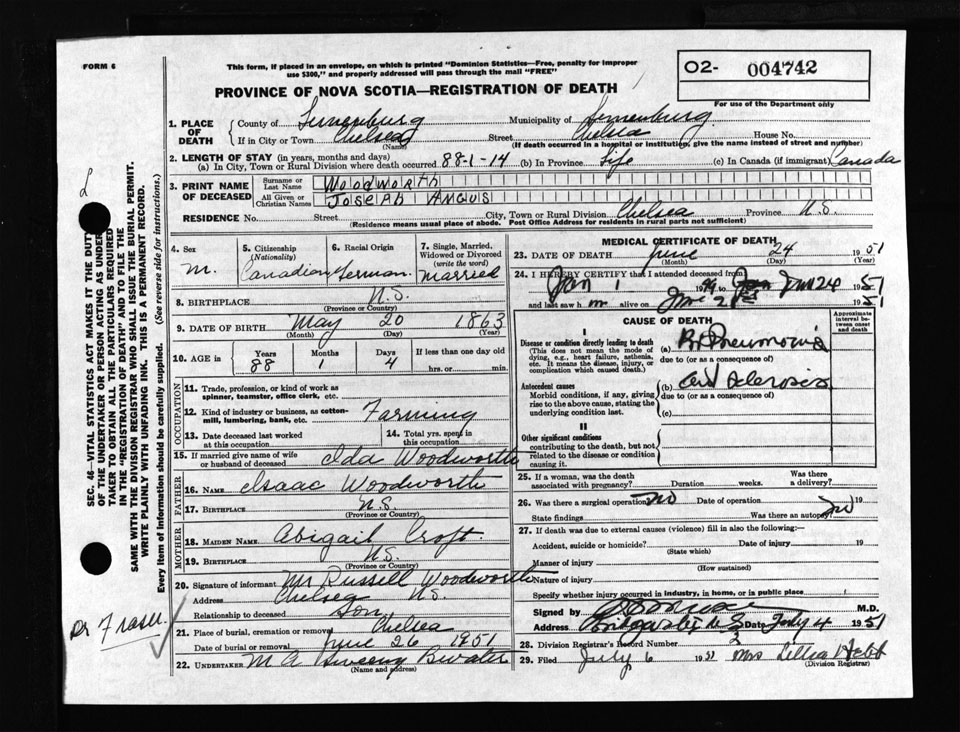 FORM 6
This form, if placed in an envelope, on which is printed "Dominion Statistics—Free, penalty for improper
use $300," and properly addressed will pass through the mail "FREE"
O2- 004742
For use of the Department only
PROVINCE OF NOVA SCOTIA—REGISTRATION OF DEATH
1. PLACE OF DEATH
County of Lunenburg Municipality of Lunenburg
If in City or Town Chelsea (Name) Street Chelsea House No.
(If death occurred in a hospital or institution, give the name instead of street and number)
2. LENGTH OF STAY (in years, months and days)
(a) In City, Town or Rural Division where death occurred 88-1-14 (b) In Province Life (c) In Canada (if immigrant) Canada
3. PRINT NAME OF DECEASED
Surname or Last Name Woodworth
All Given or Christian Names JOSEPH ANGUS
RESIDENCE No. Street City, Town or Rural Division Chelsea Province N.S.
(Residence means usual place of abode. Post Office Address for residents in rural parts not sufficient)
4. Sex M.
5. Citizenship (Nationality) Canadian
6. Racial Origin German
7. Single, Married, Widowed or Divorced (write the word) Married
8. BIRTHPLACE N.S.
(Province or Country)
9. DATE OF BIRTH May 20 1863
(Month) (Day) (Year)
10. AGE in Years 88 Months 1 Days 4 If less than one day old hrs. or min.
OCCUPATION
11. Trade, profession, or kind of work as spinner, teamster, office clerk, etc.
12. Kind of industry or business, as cotton-mill, lumbering, bank, etc. Farming
13. Date deceased last worked at this occupation
14. Total yrs. spent in this occupation
15. If married give name of wife or husband of deceased Ida Woodworth
FATHER
16. NAME Isaac Woodworth
17. BIRTHPLACE N.S.
(Province or Country)
MOTHER
18. MAIDEN NAME Abigail Croft
19. BIRTHPLACE N.S.
(Province or Country)
20. Signature of informant Mr Russell Woodworth
Address Chelsea N.S.
Relationship to deceased Son
21. Place of burial, cremation or removal Chelsea
Date of burial or removal June 26 1951
22. UNDERTAKER M A Sweeny Bwater
(Name and address)
MEDICAL CERTIFICATE OF DEATH
23. DATE OF DEATH June 24 1951
(Month) (Day) (Year)
24. I HEREBY CERTIFY that I attended deceased from
Jan 1 19 to June 24 1951
and last saw h m alive on June 1951
CAUSE OF DEATH
Approximate interval between onset and death
I
Disease or condition directly leading to death
(This does not mean the mode of dying, e.g., heart failure, asthenia, etc. It means the disease, injury, or complication which caused death.)
(a) Br. Pneumonia
due to (or as a consequence of)
Antecedent causes
Morbid conditions, if any, giving rise to the above cause, stating the underlying condition last.
(b) Sclerosis
due to (or as a consequence of)
(c)
II
Other significant conditions
contributing to the death, but not related to the disease or condition causing it.
25. If a woman, was the death associated with pregnancy? Duration weeks. Was there a delivery?
26. Was there a surgical operation no Date of operation 19
State findings Was there an autopsy no
27. If death was due to external causes (violence) fill in also the following:—
Accident, suicide or homicide? Date of injury 19
(State which)
Manner of injury
(How sustained)
Nature of injury
Specify whether injury occurred in industry, in home, or in public place
Signed by M.D.
Address Bridgewater N S Date July 4 1951
28. Division Registrar's Record Number 2
29. Filed July 6 1951 Mrs Lillia Hebb
(Division Registrar)
SEC. 46—VITAL STATISTICS ACT MAKES IT THE DUTY
OF THE UNDERTAKER OR PERSON ACTING AS UNDER-
TAKER TO OBTAIN ALL THE PARTICULARS REQUIRED
IN THE "REGISTRATION OF DEATH" AND TO FILE THE
SAME WITH THE DIVISION REGISTRAR WHO SHALL ISSUE THE BURIAL PERMIT.
WRITE PLAINLY WITH UNFADING INK. THIS IS A PERMANENT RECORD.
Every item of Information should be carefully supplied. (See reverse side for instructions.)
L
Dr Fraser